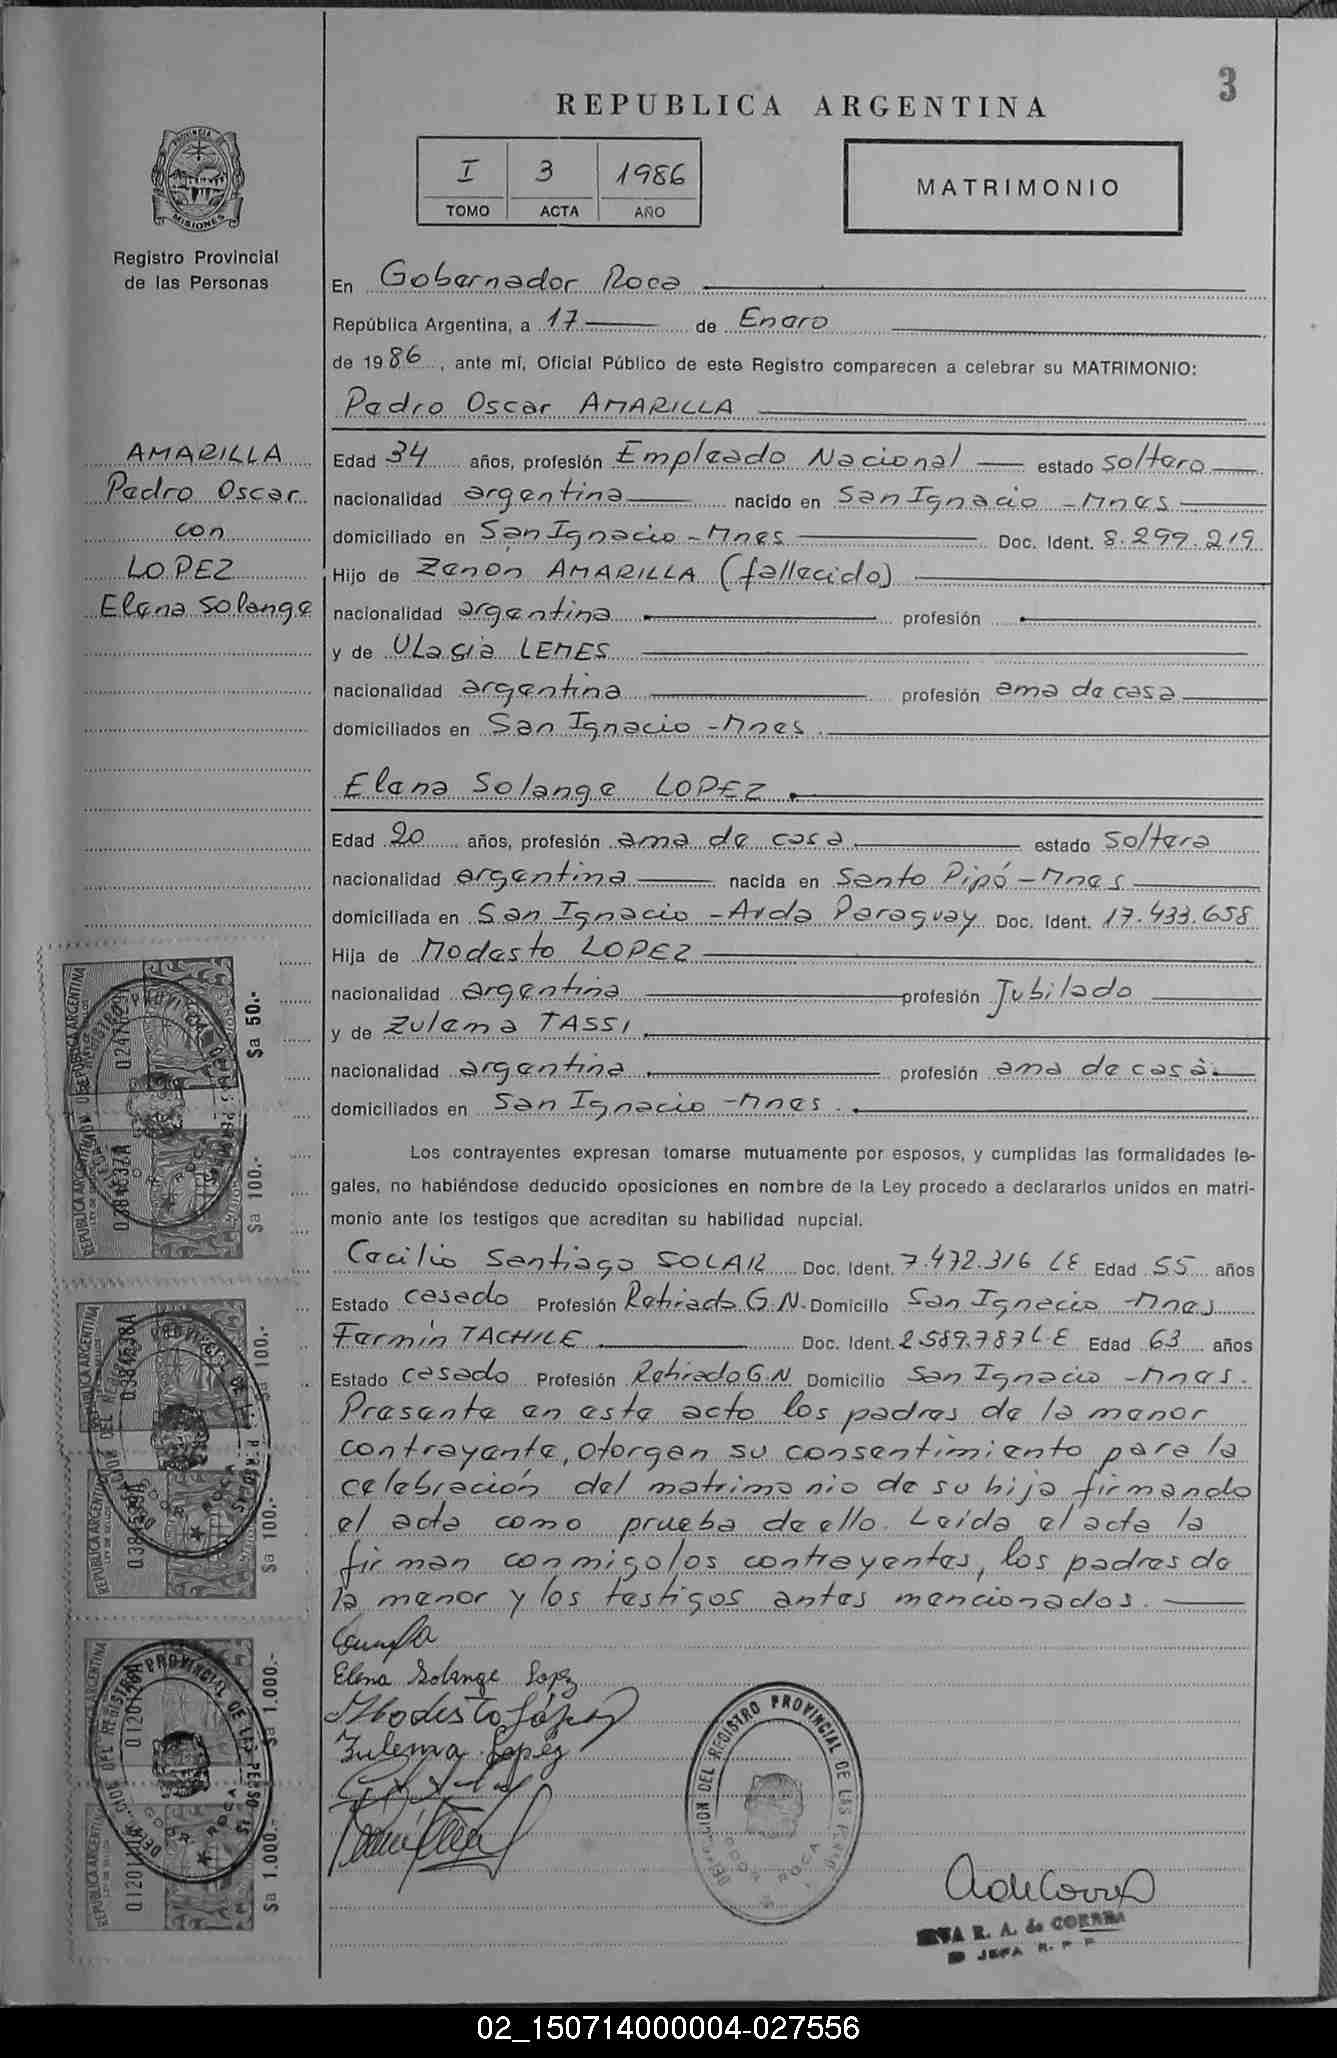 3
REPUBLICA ARGENTINA
I 3 1986
TOMO ACTA AÑO
MATRIMONIO
PROVINCIA
MISIONES
Registro Provincial
de las Personas
En Gobernador Roca
República Argentina, a 17 de Enero
de 1986, ante mí, Oficial Público de este Registro comparecen a celebrar su MATRIMONIO:
Pedro Oscar AMARILLA
AMARILLA
Pedro Oscar
con
LOPEZ
Elena Solange
Edad 34 años, profesión Empleado Nacional estado soltero
nacionalidad argentina nacido en San Ignacio - Mnes
domiciliado en San Ignacio - Mnes Doc. Ident. 8.299.219
Hijo de Zenón AMARILLA (fallecido)
nacionalidad argentina profesión
y de ULasia LEMES
nacionalidad argentina profesión ama de casa
domiciliados en San Ignacio - Mnes.
Elena Solange LOPEZ
Edad 20 años, profesión ama de casa estado soltera
nacionalidad argentina nacida en Santo Pipó - Mnes
domiciliada en San Ignacio - Avda Paraguay Doc. Ident. 17.433.658
Hija de Modesto LOPEZ
nacionalidad argentina profesión Jubilado
y de Zulema TASSI
nacionalidad argentina profesión ama de casa.
domiciliados en San Ignacio - Mnes.
Los contrayentes expresan tomarse mutuamente por esposos, y cumplidas las formalidades le-
gales, no habiéndose deducido oposiciones en nombre de la Ley procedo a declararlos unidos en matri-
monio ante los testigos que acreditan su habilidad nupcial.
Cecilio Santiago SOLAR Doc. Ident. 7.472.316 LE Edad 55 años
Estado casado Profesión Retirado G.N. Domicilio San Ignacio - Mnes
Fermín TACHILE Doc. Ident. 2589.787 L.E Edad 63 años
Estado casado Profesión Retirado G.N Domicilio San Ignacio - Mnes.
Presente en este acto los padres de la menor
contrayente, otorgan su consentimiento para la
celebración del matrimonio de su hija firmando
el acta como prueba de ello. Leída el acta la
firman conmigo los contrayentes, los padres de
la menor y los testigos antes mencionados.
Elena Solange Lopez
Modesto López
Zulema Lopéz
DELEGACION DEL REGISTRO PROVINCIAL DE LAS PERSONAS
GDOR ROCA
R. A. de CORREA
JEFA R. P. P.
REPUBLICA ARGENTINA
$a 50.-
REPUBLICA ARGENTINA
$a 100.-
REPUBLICA ARGENTINA
0384638A
$a 100.-
REPUBLICA ARGENTINA
$a 100.-
REPUBLICA ARGENTINA
$a 1.000.-
REPUBLICA ARGENTINA
$a 1.000.-
02_150714000004-027556